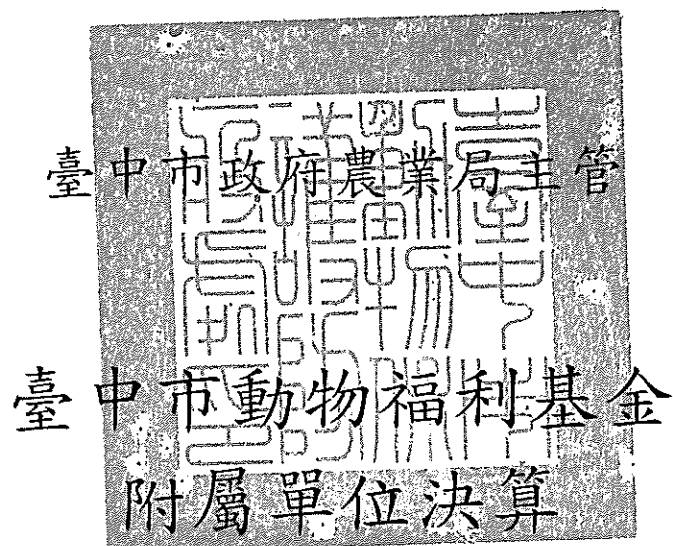 臺中市政府農業局主管
臺中市動物福利基金
附屬單位決算